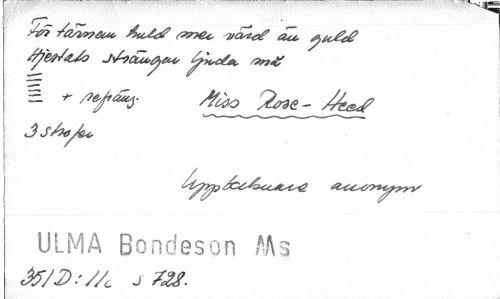 För tärnan huld mer värd än guld
Hjertats strängar ljuda må
+ refräng. Miss Rose-Heed
3 strofer
Upptecknare anonym
ULMA Bondeson Ms
351D:11c s 728.